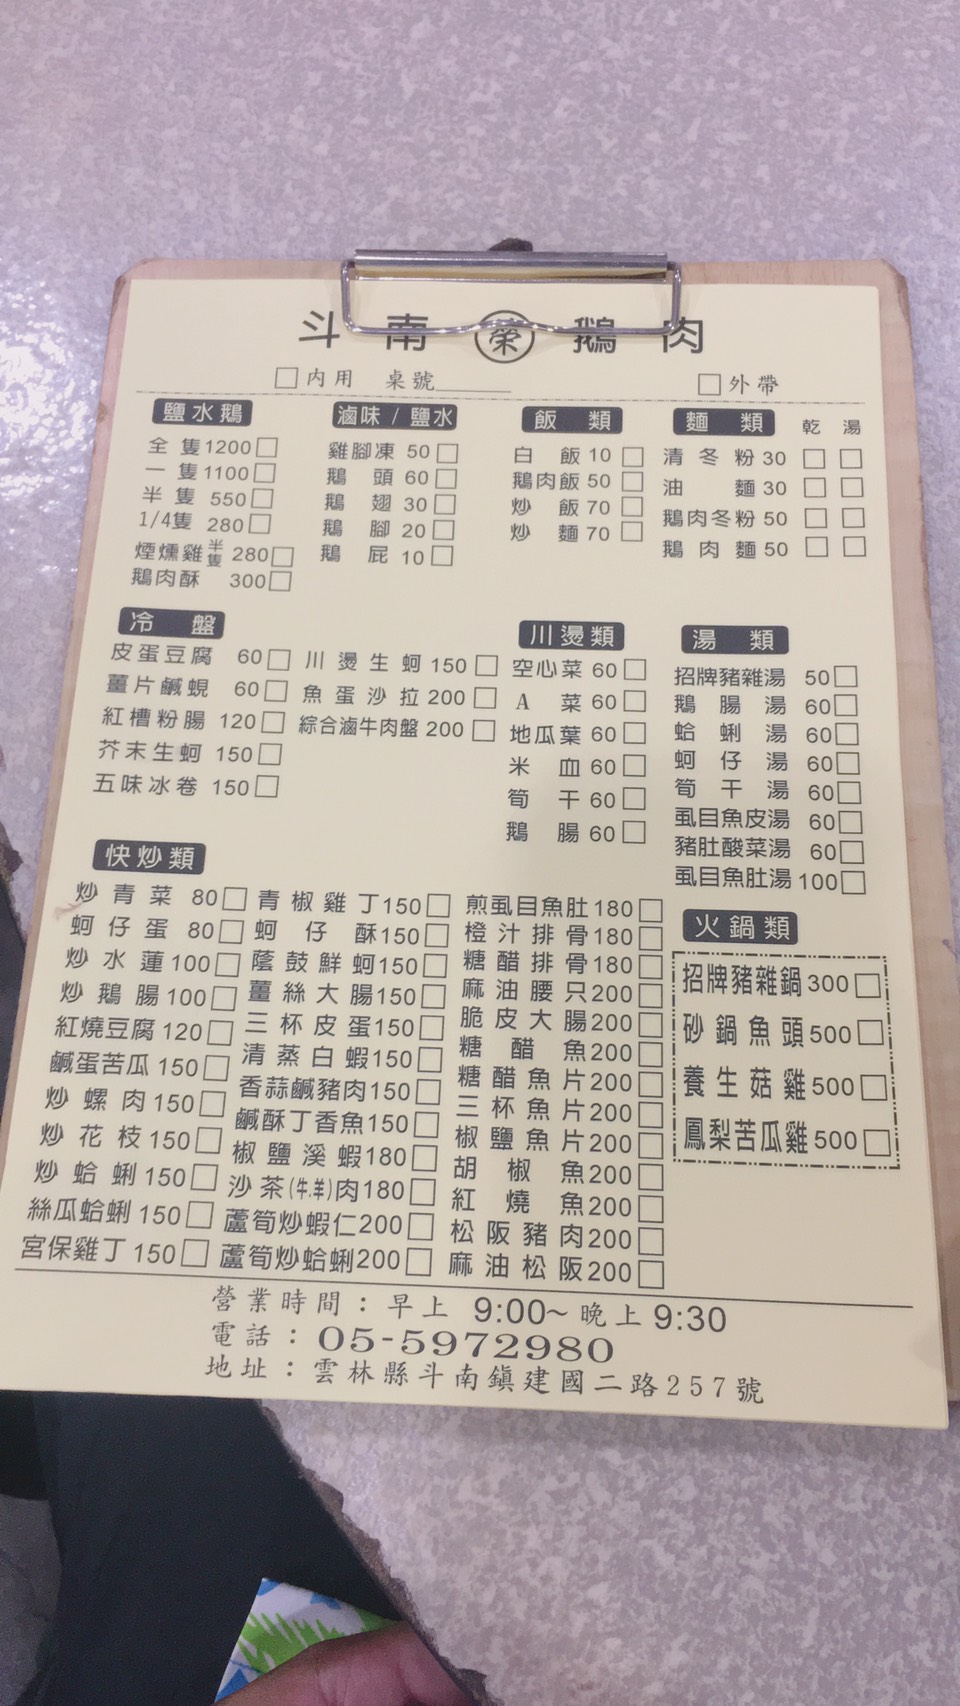 斗南榮鵝肉
□內用 桌號______ □外帶
鹽水鵝
全隻1200□
一隻1100□
半隻550□
1/4隻280□
煙燻雞半隻280□
鵝肉酥300□
滷味/鹽水
雞腳凍50□
鵝頭60□
鵝翅30□
鵝腳20□
鵝屁10□
飯類
白飯10□
鵝肉飯50□
炒飯70□
炒麵70□
麵類 乾 湯
清冬粉30□□
油麵30□□
鵝肉冬粉50□□
鵝肉麵50□□
冷盤
皮蛋豆腐60□
薑片鹹蜆60□
紅槽粉腸120□
芥末生蚵150□
五味冰卷150□
川燙生蚵150□
魚蛋沙拉200□
綜合滷牛肉盤200□
川燙類
空心菜60□
A菜60□
地瓜葉60□
米血60□
筍干60□
鵝腸60□
湯類
招牌豬雜湯50□
鵝腸湯60□
蛤蜊湯60□
蚵仔湯60□
筍干湯60□
虱目魚皮湯60□
豬肚酸菜湯60□
虱目魚肚湯100□
快炒類
炒青菜80□
蚵仔蛋80□
炒水蓮100□
炒鵝腸100□
紅燒豆腐120□
鹹蛋苦瓜150□
炒螺肉150□
炒花枝150□
炒蛤蜊150□
絲瓜蛤蜊150□
宮保雞丁150□
青椒雞丁150□
蚵仔酥150□
蔭鼓鮮蚵150□
薑絲大腸150□
三杯皮蛋150□
清蒸白蝦150□
香蒜鹹豬肉150□
鹹酥丁香魚150□
椒鹽溪蝦180□
沙茶(牛.羊)肉180□
蘆筍炒蝦仁200□
蘆筍炒蛤蜊200□
煎虱目魚肚180□
橙汁排骨180□
糖醋排骨180□
麻油腰只200□
脆皮大腸200□
糖醋魚200□
糖醋魚片200□
三杯魚片200□
椒鹽魚片200□
胡椒魚200□
紅燒魚200□
松阪豬肉200□
麻油松阪200□
火鍋類
招牌豬雜鍋300□
砂鍋魚頭500□
養生菇雞500□
鳳梨苦瓜雞500□
營業時間：早上 9:00~晚上9:30
電話：05-5972980
地址：雲林縣斗南鎮建國二路257號